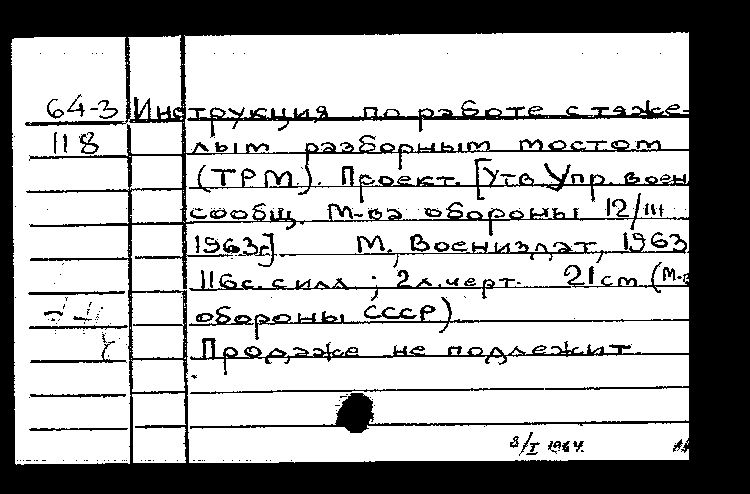 64-3 Инструкция по работе с тяже-
118 лым разборным мостом
(ТРМ). Проект. [Утв Упр. воен
сообщ. М-ва обороны 12/III
1963г]. М., Воениздат, 1963
116с. с илл ; 2л.черт. 21см (М-в
обороны СССР)
Продаже не подлежит.
3/I 1964.